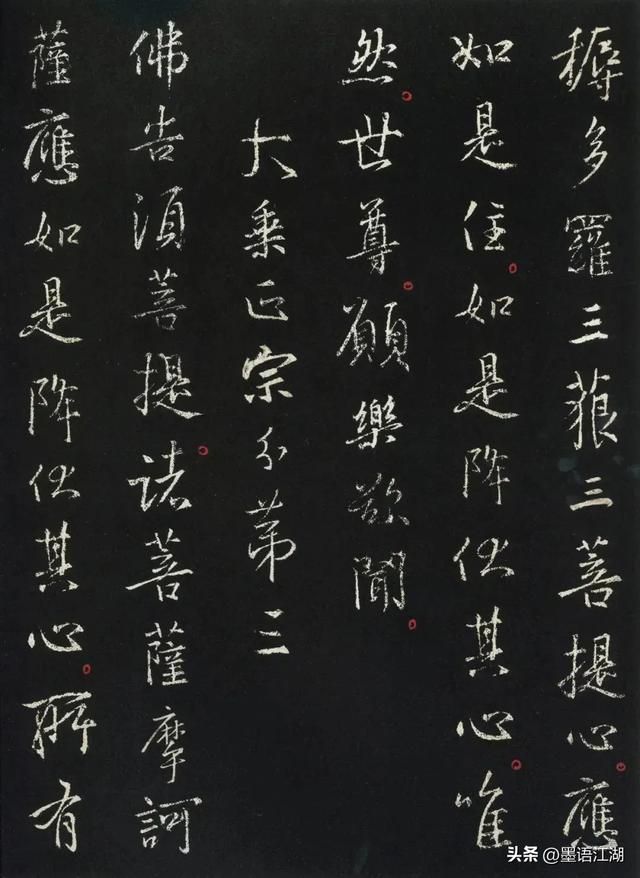 耨多羅三藐三菩提心。應
如是住。如是降伏其心。唯
然。世尊。願樂欲聞。
大乘正宗分第三
佛告須菩提。諸菩薩摩訶
薩應如是降伏其心。所有
头条 @墨语江湖